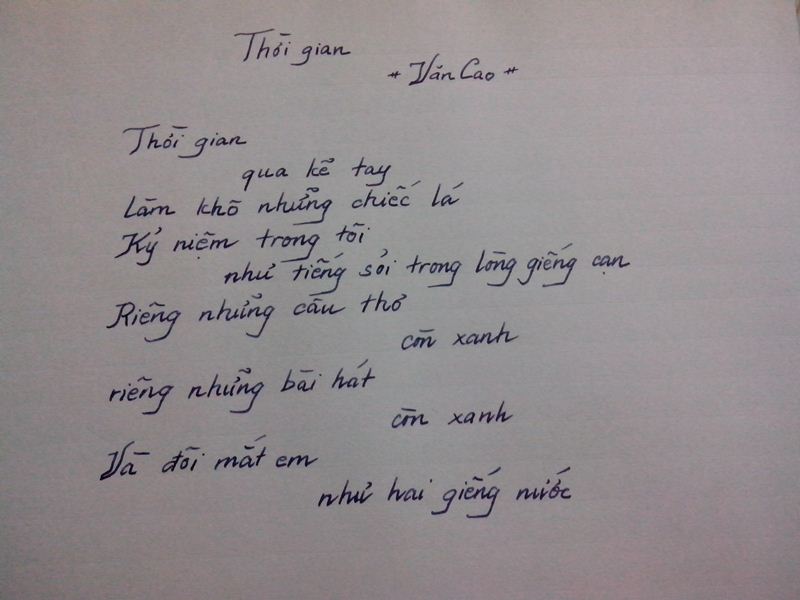 Thời gian
* Văn Cao *
Thời gian
qua kẽ tay
Làm khô những chiếc lá
Kỷ niệm trong tôi
như tiếng sỏi trong lòng giếng cạn
Riêng những câu thơ
còn xanh
riêng những bài hát
còn xanh
Và đôi mắt em
như hai giếng nước